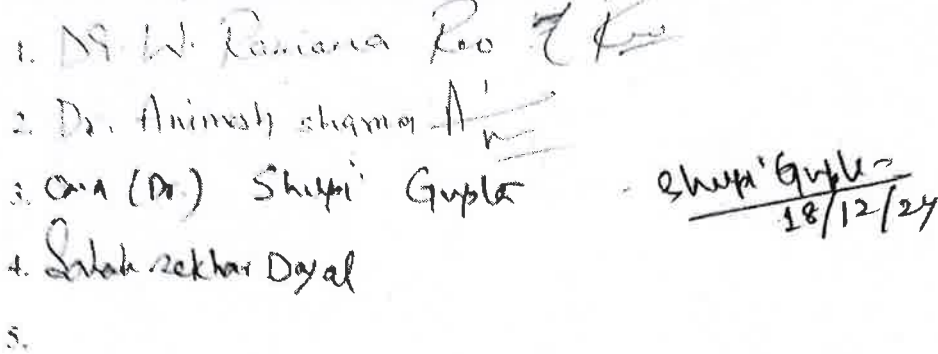 1. Dr. W. Ramana Rao
2. Dr. Animesh Sharma
3. (Dr) Shilpi Gupta Shilpi Gupta
18/12/24
4. sekhar Dayal
5.